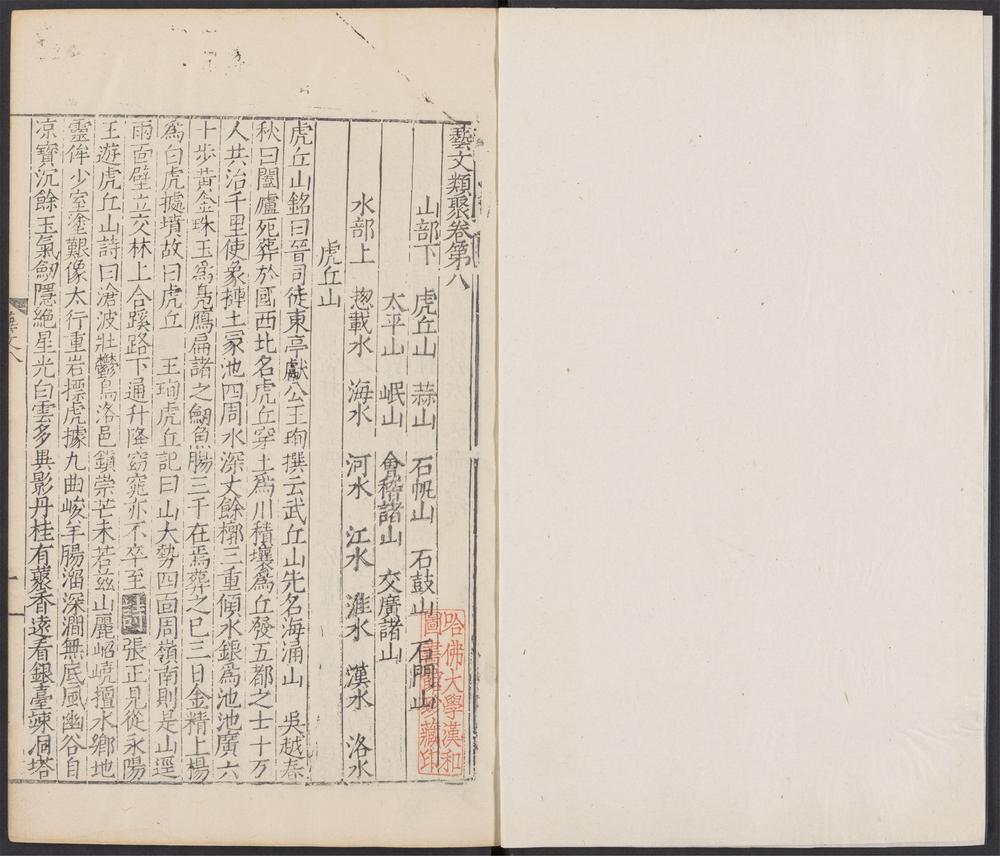 藝文類聚卷第八
山部下 虎丘山 蒜山 石帆山 石鼓山 石門山
太平山 岷山 會稽諸山 交廣諸山
水部上 揔載水 海水 河水 江水 淮水 漢水 洛水
虎丘山
虎丘山銘曰晉司徒東亭獻公王珣撰云武丘山先名海涌山 吳越春
秋曰闔廬死葬於國西北名虎丘穿土爲川積壤爲丘發五都之士十万
人共治千里使象摙土冢池四周水深丈餘槨三重傾水銀爲池池廣六
十步黃金珠玉爲鳧鴈扁諸之劒魚腸三千在焉葬之已三日金精上揚
爲白虎據墳故曰虎丘 王珣虎丘記曰山大勢四面周嶺南則是山逕
兩面壁立交林上合蹊路下通升降窈窕亦不卒至 張正見從永陽
王遊虎丘山詩曰滄波壯鬱島洛邑鎮崇芒未若茲山麗岧嶤擅水鄉地
靈侔少室塗艱像太行重岩摽虎據九曲峻羊腸溜深澗無底風幽谷自
凉寶沉餘玉氣劒隱絕星光白雲多異影丹桂有藂香遠看銀臺竦洞塔
哈佛大學漢和
圖書館珍藏印